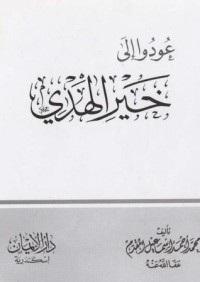 عودوا إلى
خير الهدي
تأليف
محمد أحمد إسماعيل المقدم
عفا الله عنه
دار الإيمان
إسكندرية